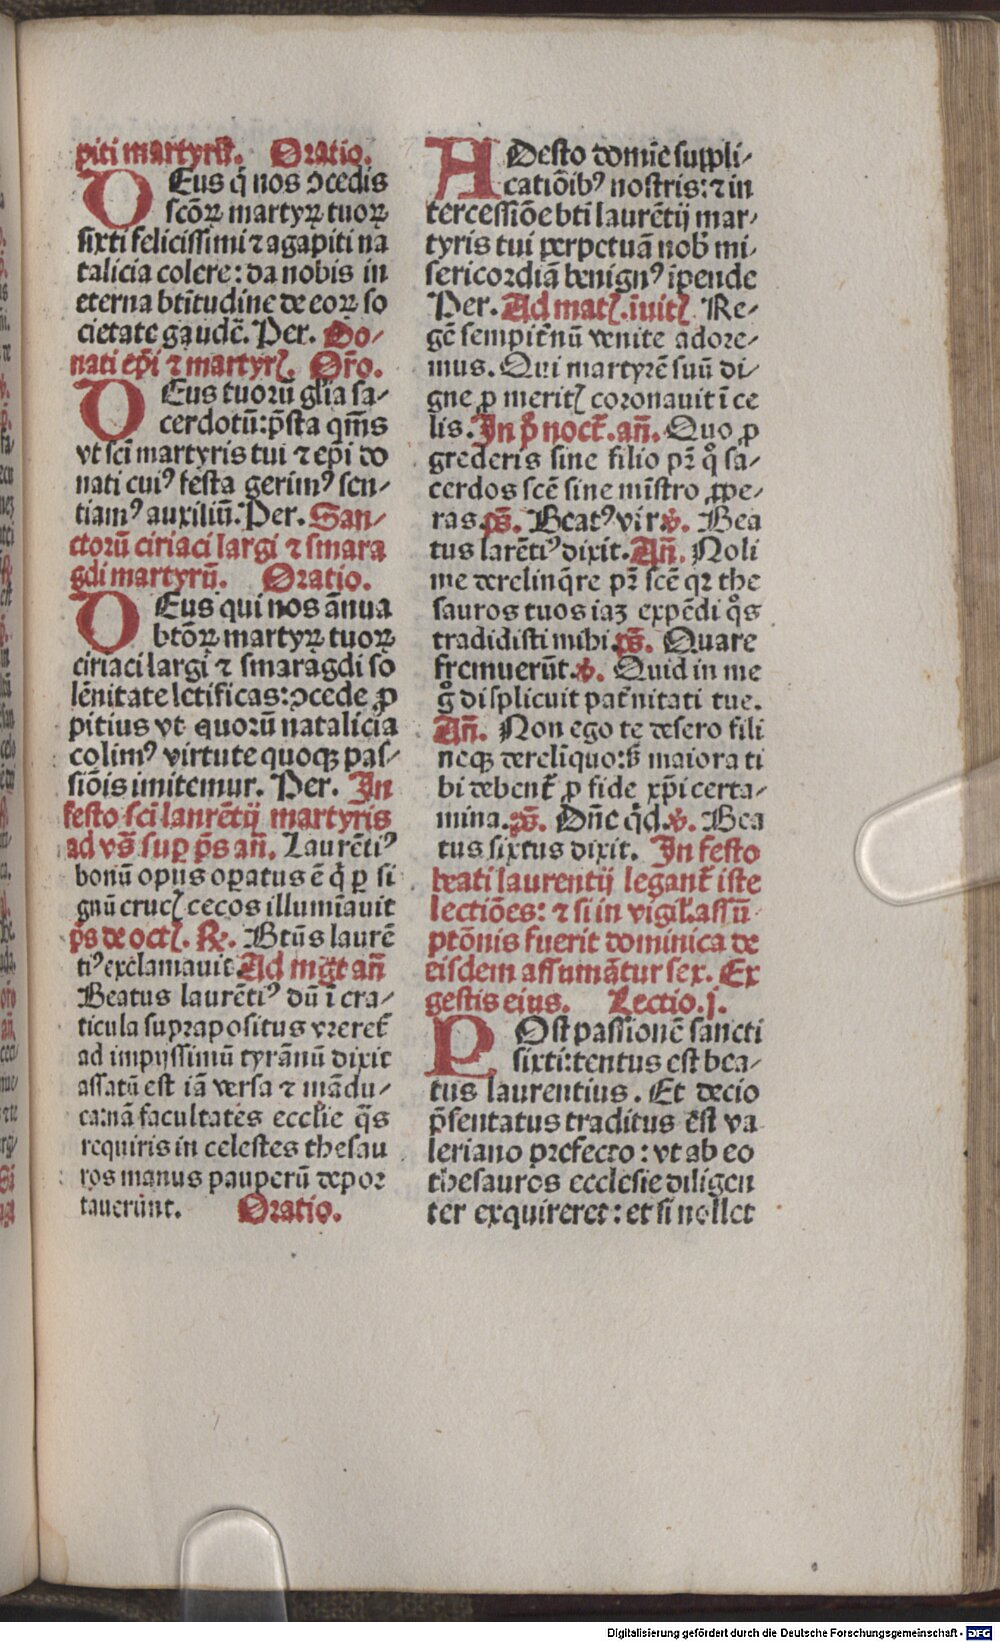 piti martyrū. Oratio.
DEus q̄ nos ↄcedis
scōꝝ martyꝝ tuoꝝ
sixti felicissimi ⁊ agapiti na
talicia colere: da nobis in
eterna btītudine de eoꝝ so
cietate gaudē. Per. Do⸗
nati ep̄i ⁊ martyrꝭ. Or̄o.
DEus tuorū gl̄ia sa⸗
cerdotū: p̄sta qm̄s
vt sci̅ martyris tui ⁊ ep̄i do
nati cuiꝰ festa gerimꝰ sen⸗
tiamꝰ auxiliū. Per. San⸗
ctorū ciriaci largi ⁊ smara
gdi martyrū. Oratio.
DEus qui nos ānua
btōꝝ martyꝝ tuoꝝ
ciriaci largi ⁊ smaragdi so
lēnitate letificas: ↄcede ꝓ
pitius vt quorū natalicia
colimꝰ virtute quoqꝫ pas⸗
siōis imitemur. Per. In
festo sci̅ laurētij martyris
ad vs̄ suꝑ p̄s an̄. Laurētiꝰ
bonū opus oꝑatus ē q̄ ꝑ si
gnū crucꝭ cecos illumīauit
p̄s de octꝭ. ℞. Btūs laurē
tiꝰ exclamauit. Ad mgt an̄
Beatus laurētiꝰ dū ī cra⸗
ticula suprapositus vreret̄
ad impijssimū tyrānū dixit
assatū est iā versa ⁊ mādu⸗
ca: nā facultates eccl̄ie q̄s
requiris in celestes thesau
ros manus pauperū depor
tauerūnt. Oratio.
ADesto domīe suppli⸗
catiōibꝰ nostris: ⁊ in
tercessiōe bti laurētij mar⸗
tyris tui perpetuā nob̄ mi⸗
sericordiā benignꝰ ip̄ende
Per. Ad matꝭ. īuitꝭ. Re⸗
gē sempit̄nū venite adore⸗
mus. Qui martyrē suū di⸗
gne ꝓ meritꝭ coronauit ī ce
lis. In p̄ noct̄. an̄. Quo ꝓ
grederis sine filio pr̄ qͦ sa⸗
cerdos scē sine mīstro ꝓpe⸗
ras. ps̄. Beatꝰ vir ℣. Bea
tus larētiꝰ dixit. An̄. Noli
me derelinq̄re pr̄ scē qꝛ the
sauros tuos iaꝫ expēdi qͦs
tradidisti mihi. ps̄. Quare
fremuerūt. ℣. Quid in me
gͦ displicuit pat̄nitati tue.
An̄. Non ego te desero fili
neqꝫ derelīquo: sꝫ maiora ti
bi debent̄ ꝓ fide xp̄i certa⸗
mina. ps̄. Dn̄e q̇d. ℣. Bea
tus sixtus dixit. In festo
beati laurentij legant̄ iste
lectiōes: ⁊ si in vigil̄. assū⸗
ptōnis fuerit dominica de
eisdem assumātur sex. Ex
gestis eius. Lectio. j.
POst passionē sancti
sixti: tentus est bea⸗
tus laurentius. Et decio
p̄sentatus traditus est va
leriano prefecto: vt ab eo
thesauros ecclesie diligen
ter exquireret: et si nollet
Digitalisierung gefördert durch die Deutsche Forschungsgemeinschaft - DFG